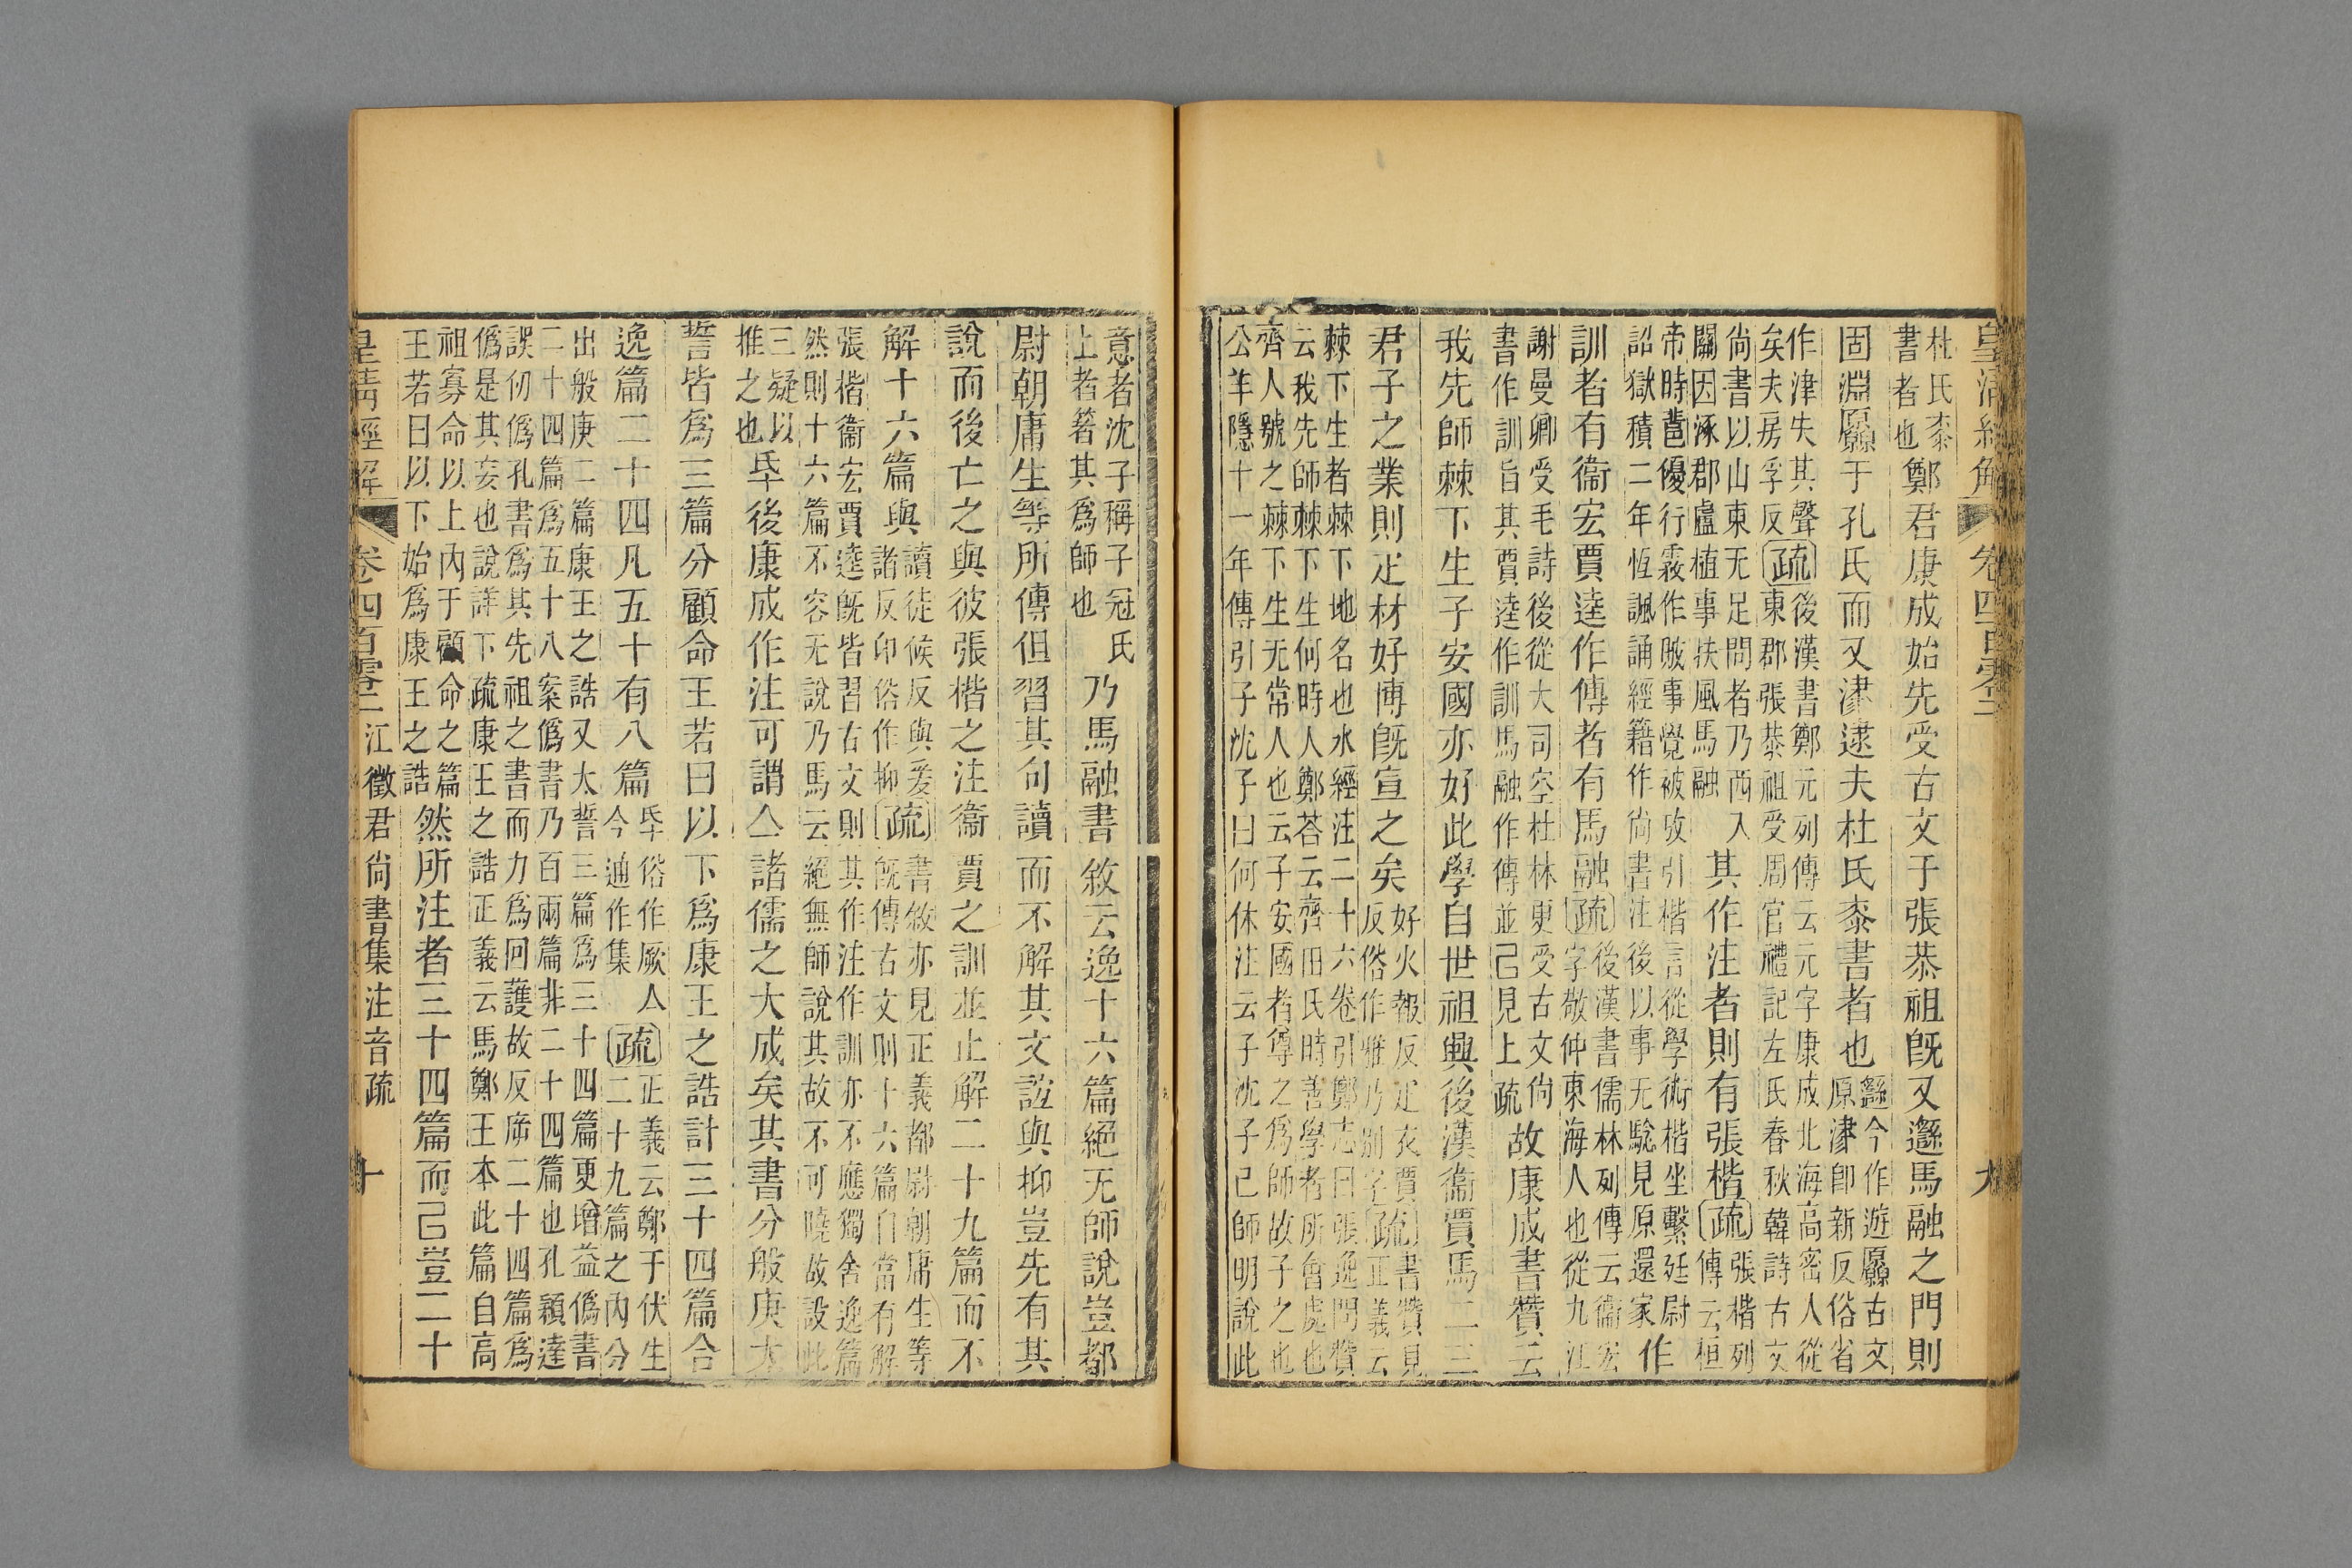 皇清經解 卷四百零二 九
杜氏桼
書者也鄭君康成始先受古文于張恭祖旣又遊馬融之門則
固淵原于孔氏而又津逮夫杜氏桼書者也遊今作遊原古文
原津卽新反俗省
作津失其聲
矣夫房孚反疏後漢書鄭元列傳云元字康成北海高密人從
東郡張恭祖受周官禮記左氏春秋韓詩古文
尙書以山東无足問者乃西入
關因涿郡盧植事扶風馬融其作注者則有張楷疏張楷列
傳云桓
帝時優行霧作賊事覺被攷引楷言從學術楷坐繫廷尉
詔獄積二年恆諷誦經籍作尙書注後以事无驗見原還家作
訓者有衞宏賈逵作傳者有馬融疏後漢書儒林列傳云衞宏
字敬仲東海人也從九江
謝曼卿受毛詩後從大司空杜林更受古文尙
書作訓旨其賈逵作訓馬融作傳並已見上疏故康成書贊云
我先師棘下生子安國亦好此學自世祖興後漢衞賈馬二三
君子之業則疋材好博旣宣之矣好火報反疋衣賈
反俗作雅乃別字疏書贊見
正義云
棘下生者棘下地名也水經注二十六卷引鄭志曰張逸問贊
云我先師棘下生何時人鄭荅云齊田氏時善學者所會處也
齊人號之棘下生无常人也云子安國者尊之爲師故子之也
公羊隱十一年傳引子沈子曰何休注云子沈子已師明說此
意者沈子稱子冠氏
上者箸其爲師也乃馬融書敘云逸十六篇絕无師說豈都
尉朝庸生等所傳但習其句讀而不解其文誼與抑豈先有其
說而後亡之與彼張楷之注衞賈之訓並止解二十九篇而不
解十六篇與讀徒候反與爰
諸反卬俗作抑疏書敘亦見正義都尉朝庸生等
旣傳古文則十六篇自當有解
張楷衞宏賈逵旣皆習古文則其作注作訓亦不應獨舍逸篇
然則十六篇不容无說乃馬云絕無師說其故不可曉故設此
三疑以
推之也氒後康成作注可謂亼諸儒之大成矣其書分般庚大
誓皆爲三篇分顧命王若曰以下爲康王之誥計三十四篇合
逸篇二十四凡五十有八篇氒俗作厥亼
今通作集疏正義云鄭于伏生
二十九篇之內分
出般庚二篇康王之誥又大誓三篇爲三十四篇更增益僞書
二十四篇爲五十八案僞書乃百兩篇非二十四篇也孔穎達
誤仞僞孔書爲其先祖之書而力爲回護故反㡿二十四篇爲
僞是其妄也說詳下疏康王之誥正義云馬鄭王本此篇自高
祖寡命以上內于顧命之篇
王若曰以下始爲康王之誥然所注者三十四篇而已豈二十
皇淸經解 卷四百零二江徵君尙書集注音疏 十